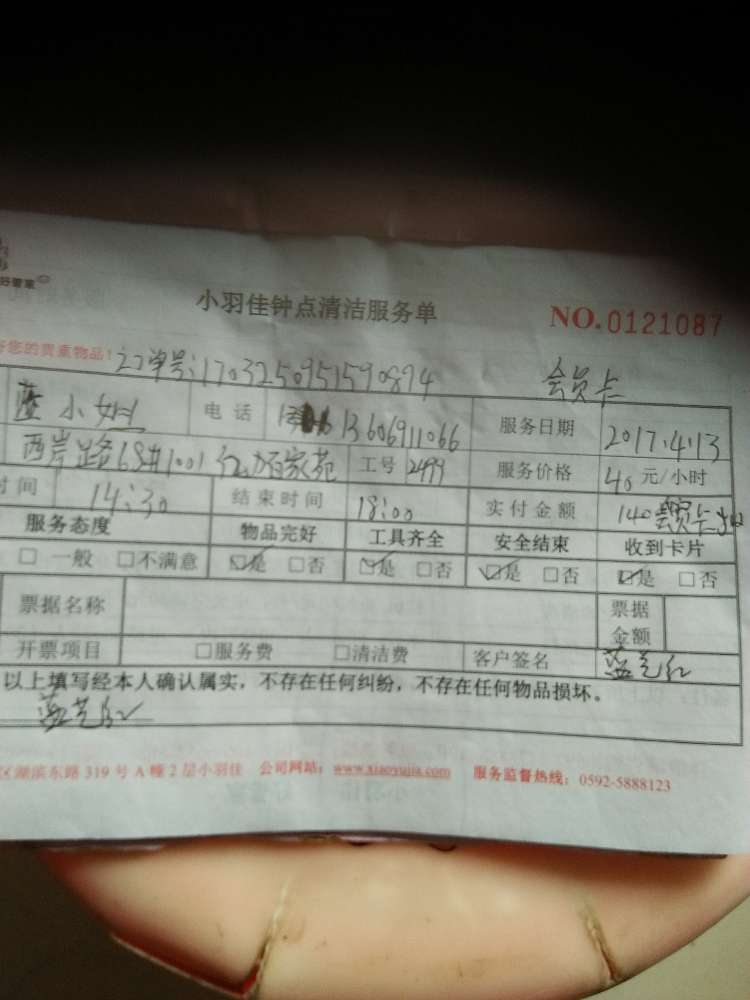 好管家
小羽佳钟点清洁服务单 NO.0121087
您的贵重物品! 订单号:1703250951590894 会员卡
蓝小姐 电话 13606911066 服务日期 2017.4.13
工号 2499 服务价格 40元/小时
时间 14:30 结束时间 18:00 实付金额 140会员卡
服务态度 物品完好 工具齐全 安全结束 收到卡片
□一般 □不满意 ☑是 □否 ☑是 □否 ☑是 □否 ☑是 □否
票据名称 票据金额
开票项目 □服务费 □清洁费 客户签名 蓝艺红
以上填写经本人确认属实,不存在任何纠纷,不存在任何物品损坏。
蓝艺红
区湖滨东路319号A幢2层小羽佳 公司网站:www.xiaoyujia.com 服务监督热线:0592-5888123